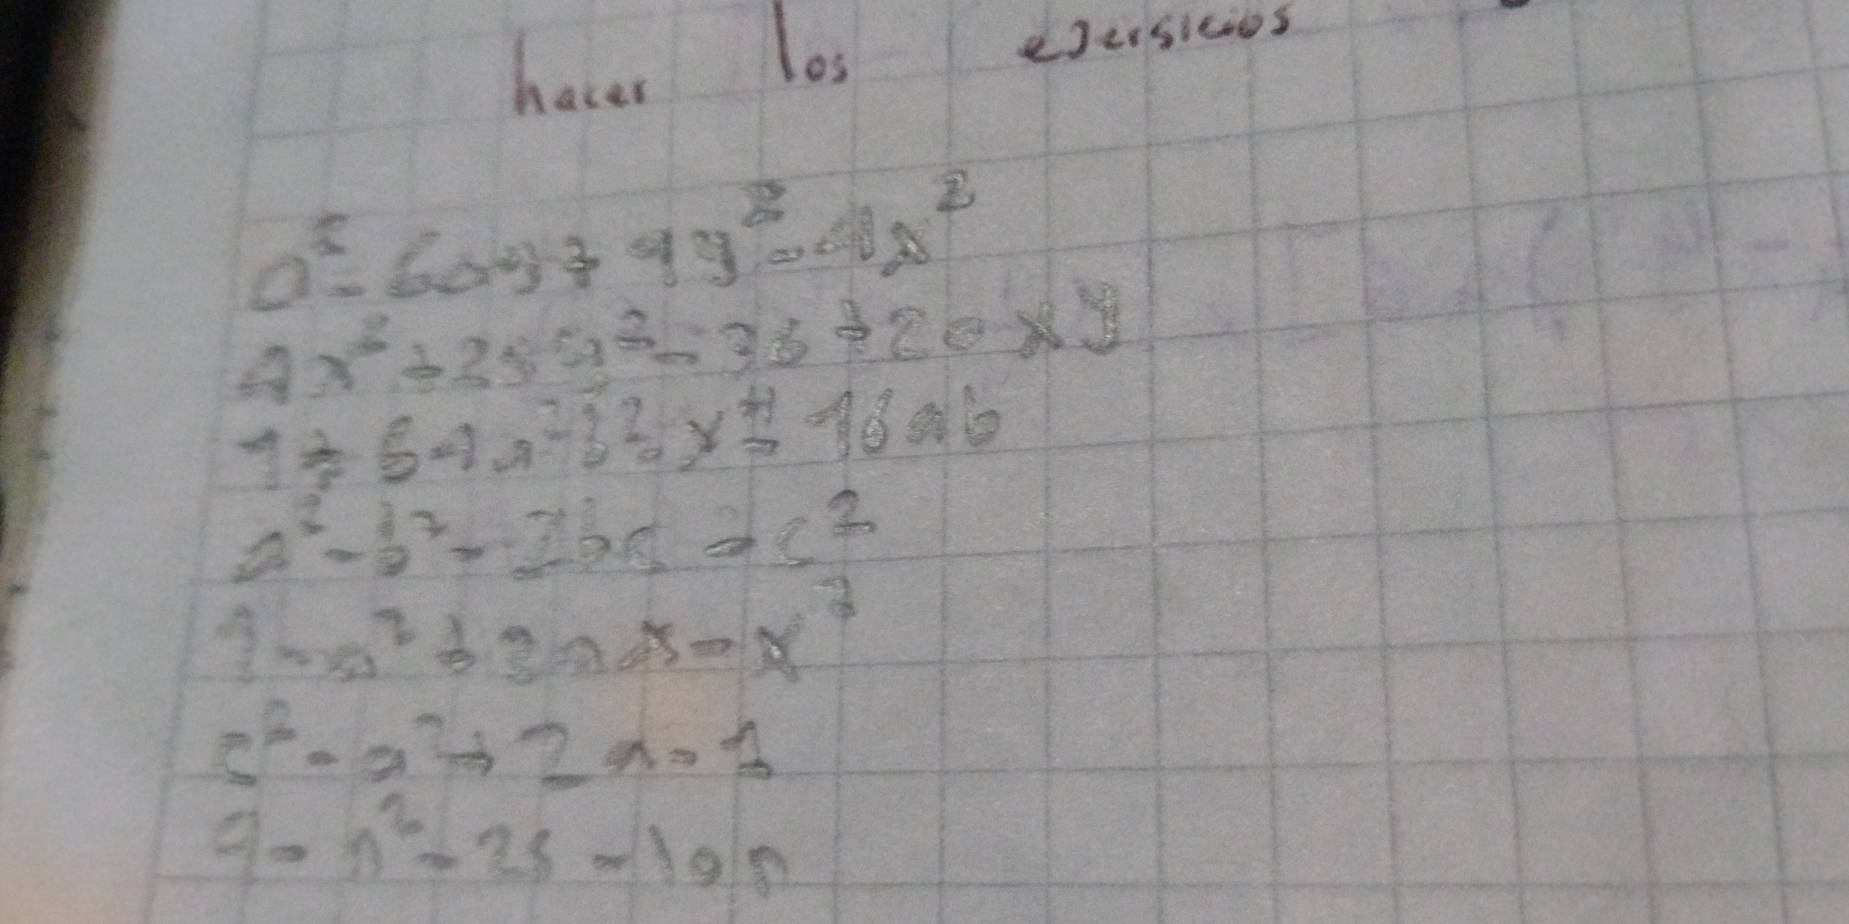 hacer los ejersicios
a² - 6ay + 9y² - 4x²
4x² + 25y² - 36 + 20xy
1 + 64a²b² - x⁴ - 16ab
a² - b² - 2bc - c²
1 - a² + 2ax - x²
c² - a² + 2a - 1
9 - n² - 25 - 10n